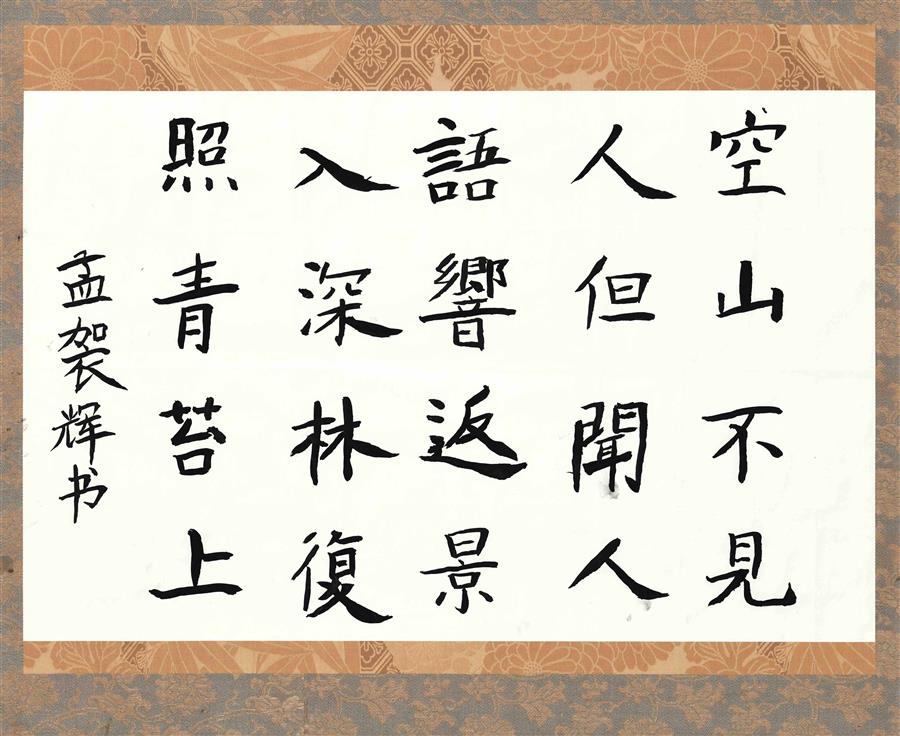 空山不見
人但聞人
語響返景
入深林復
照青苔上
孟袈辉书